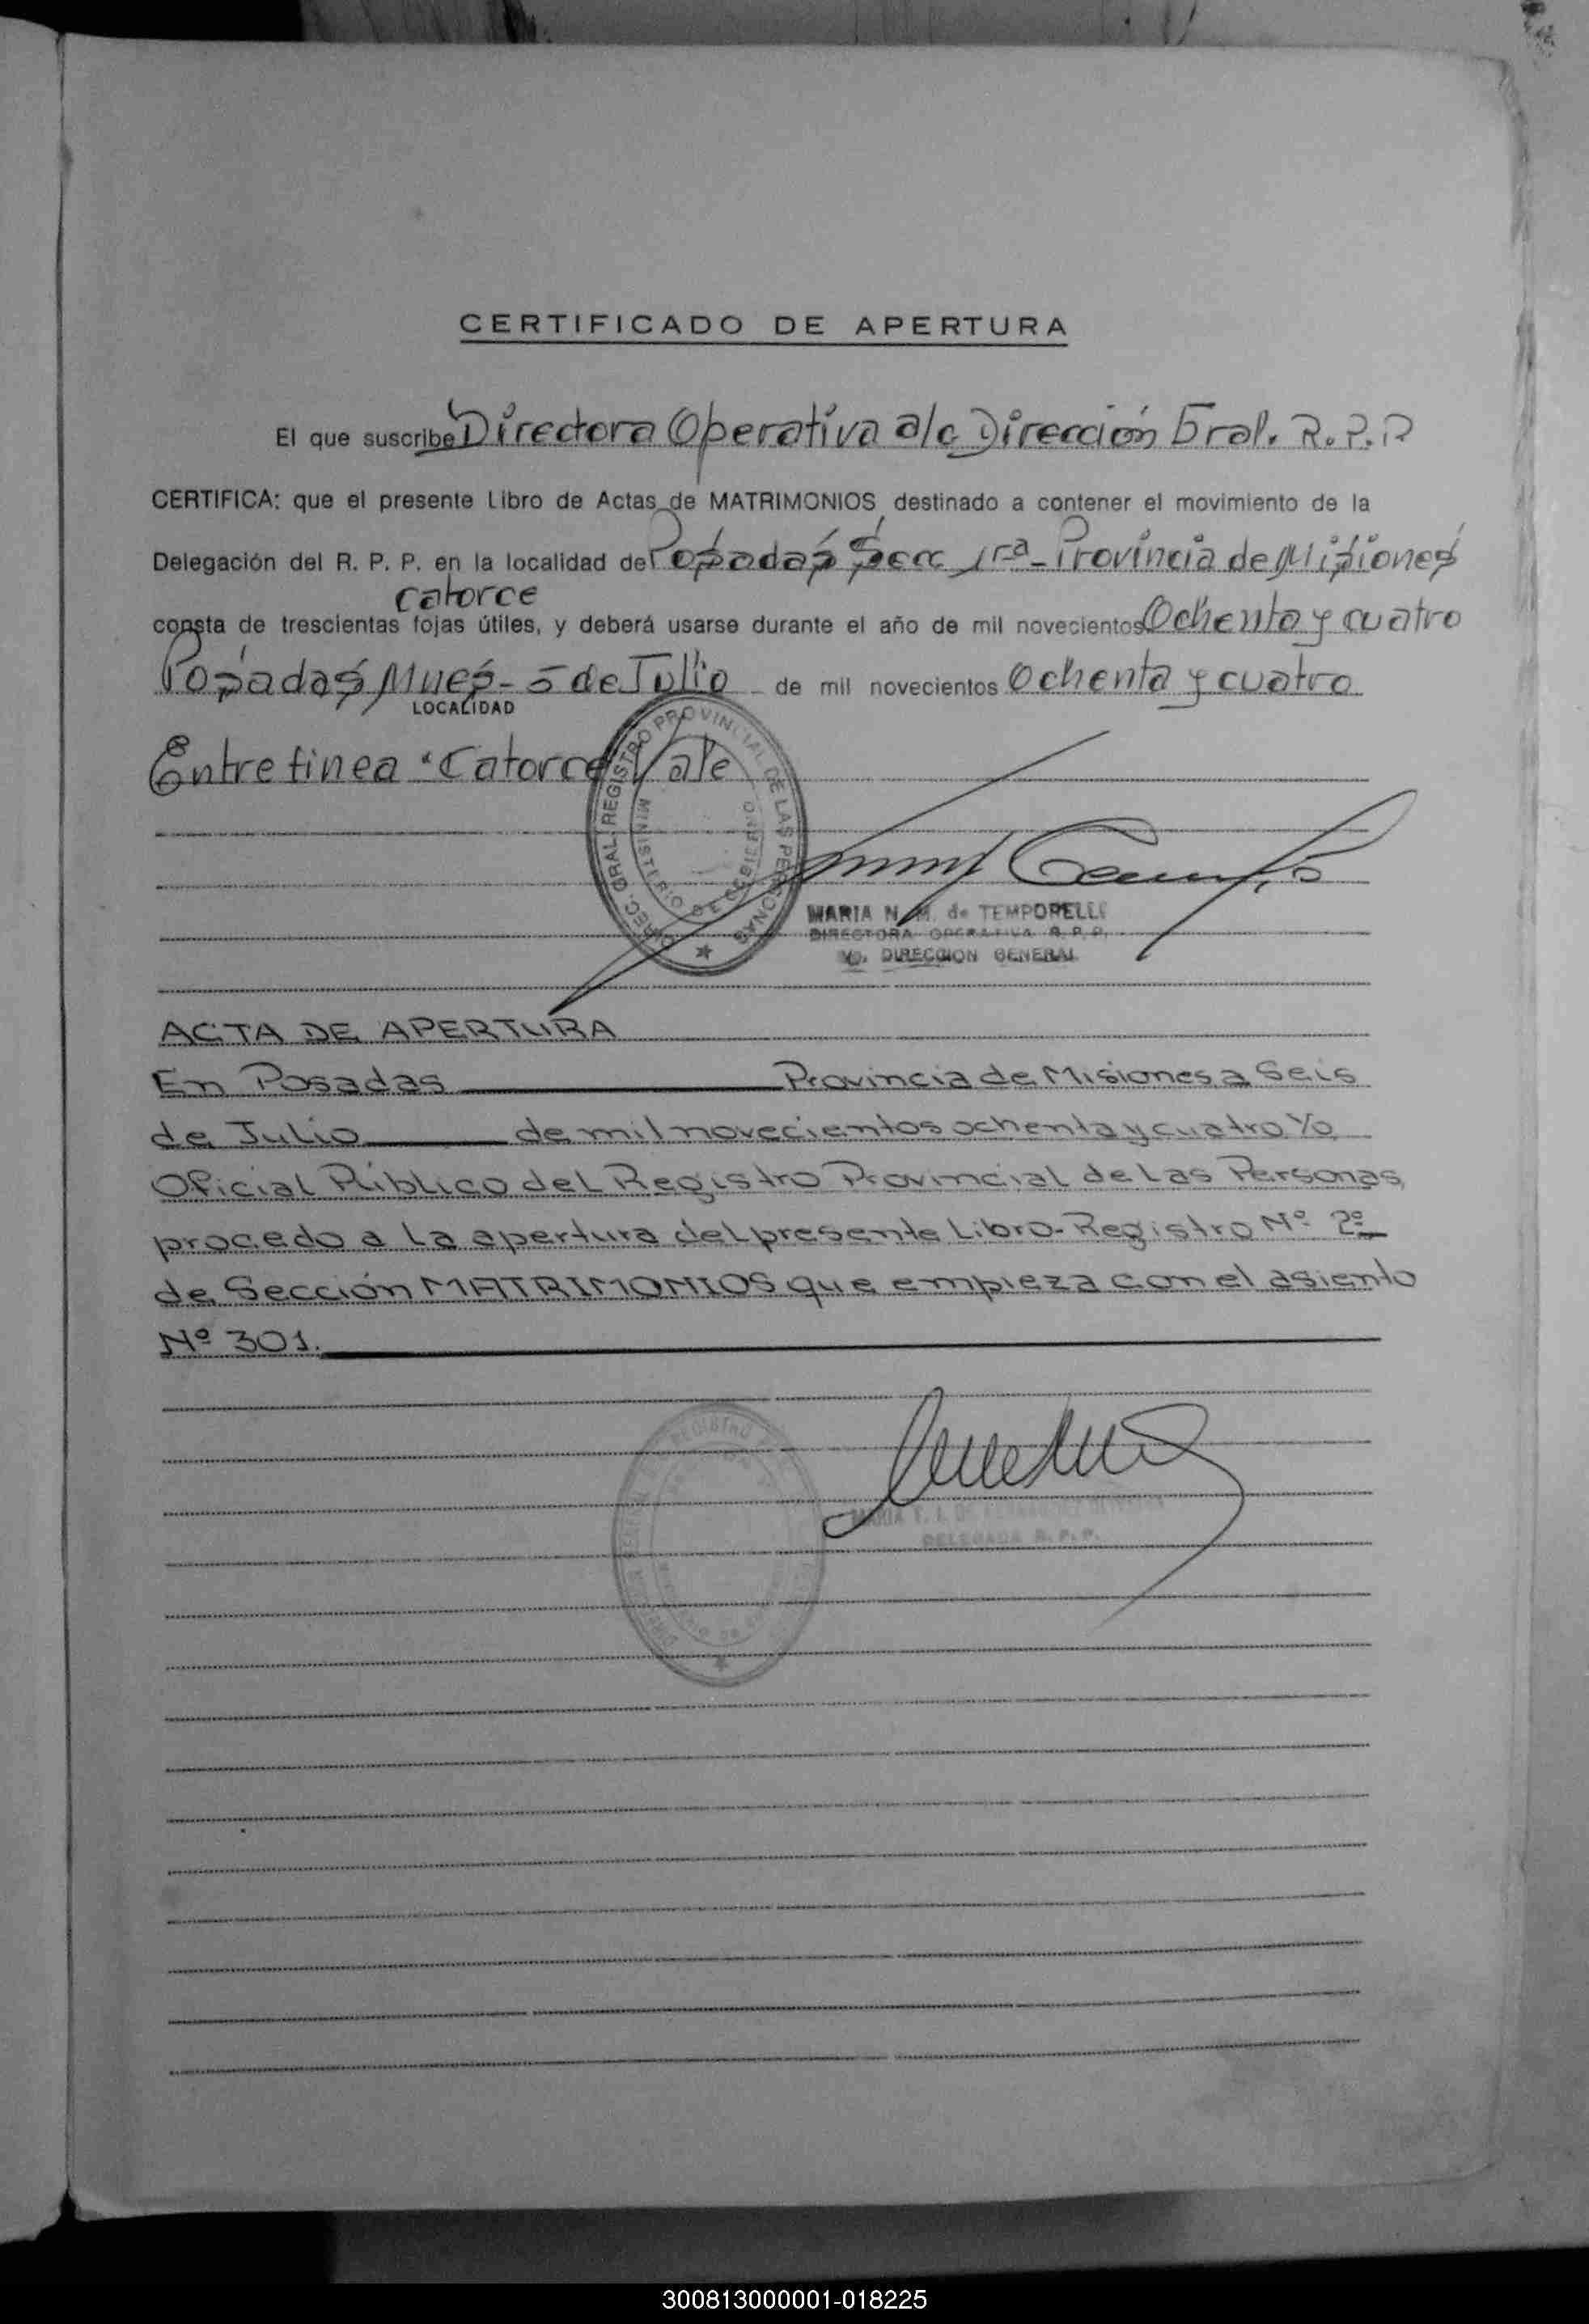 CERTIFICADO DE APERTURA
El que suscribe Directora Operativa a/c Dirección Gral. R.P.P
CERTIFICA: que el presente Libro de Actas de MATRIMONIOS destinado a contener el movimiento de la
Delegación del R. P. P. en la localidad de Posadas Secc 1ra - Provincia de Misiones
catorce
consta de trescientas fojas útiles, y deberá usarse durante el año de mil novecientos Ochenta y cuatro
Posadas Mnes - 5 de Julio de mil novecientos Ochenta y cuatro
LOCALIDAD
Entre linea "Catorce" Vale
DIREC. GRAL. REGISTRO PROVINCIAL DE LAS PERSONAS
MINISTERIO DE GOBIERNO
MARIA N. M. de TEMPORELLI
DIRECTORA OPERATIVA R. P. P.
DIRECCION GENERAL
ACTA DE APERTURA
En Posadas Provincia de Misiones a Seis
de Julio de mil novecientos ochenta y cuatro %
Oficial Público del Registro Provincial de Las Personas,
procedo a La apertura del presente Libro-Registro Nº 2º
de Sección MATRIMONIOS que empieza con el asiento
Nº 301.
REGISTRO
MARIA
DELEGADA R. P. P.
300813000001-018225